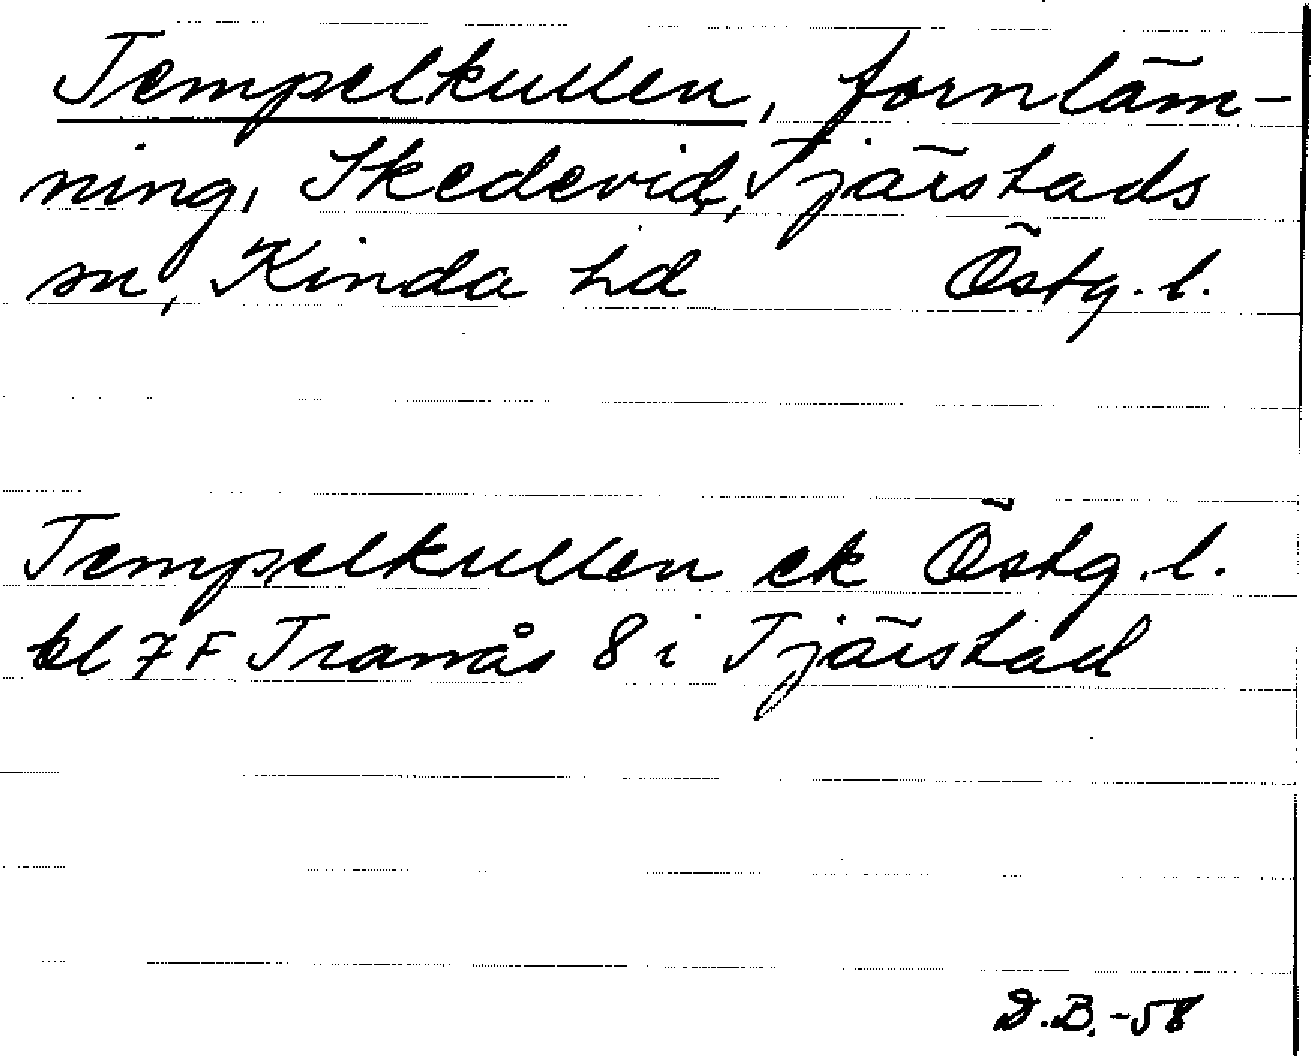 Tempelkullen, fornläm-
ning, Skedevid, Tjärstads
sn, Kinda hd Östg. l.
Tempelkullen ek Östg. l.
bl 7 F Tranås 8 i Tjärstad
D.B. -58